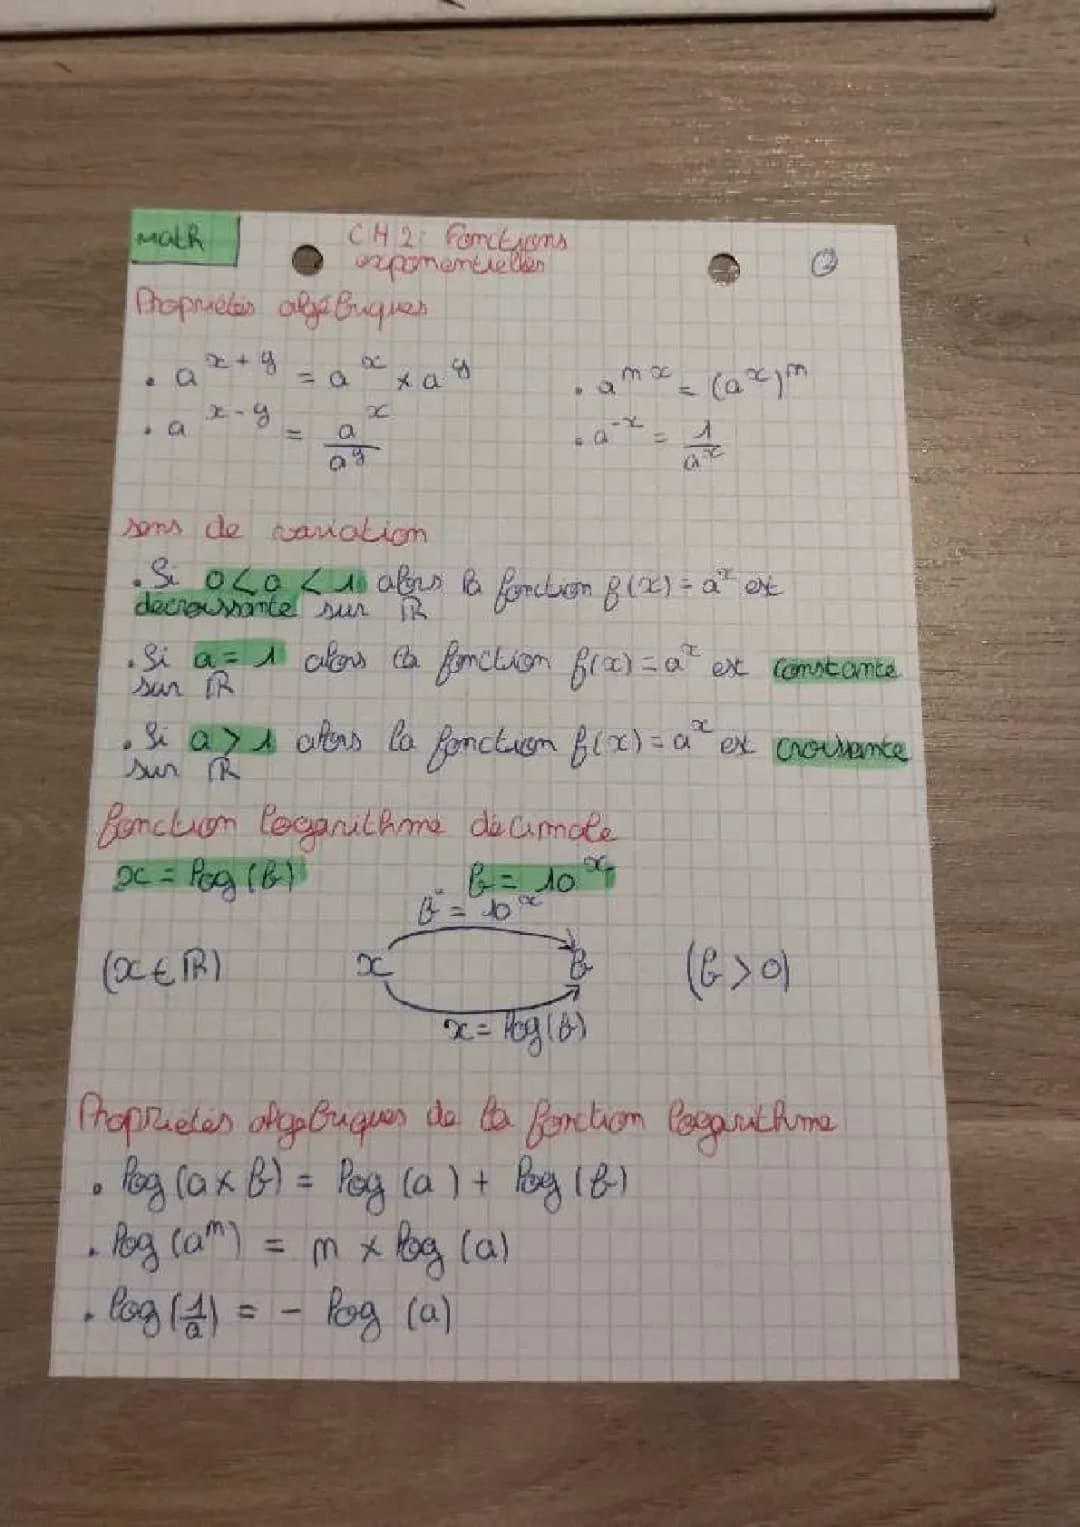 Math
CH 2: Fonctions
exponentielles
2
Propriétés algébriques
• a^{x+y} = a^x × a^y
• a^{mx} = (a^x)^m
• a^{x-y} = \frac{a^x}{a^y}
• a^{-x} = \frac{1}{a^x}
sens de variation
• Si 0 < a < 1 alors la fonction f(x) = a^x est
décroissante sur ℝ
• Si a = 1 alors la fonction f(x) = a^x est constante
sur ℝ
• Si a > 1 alors la fonction f(x) = a^x est croissante
sur ℝ
fonction logarithme décimale
x = log(b)
b = 10^x
b = 10^x
(x ∈ ℝ) x b (b > 0)
x = log(b)
Propriétés algébriques de la fonction logarithme
• log(a × b) = log(a) + log(b)
• log(a^m) = m × log(a)
• log(\frac{1}{a}) = - log(a)